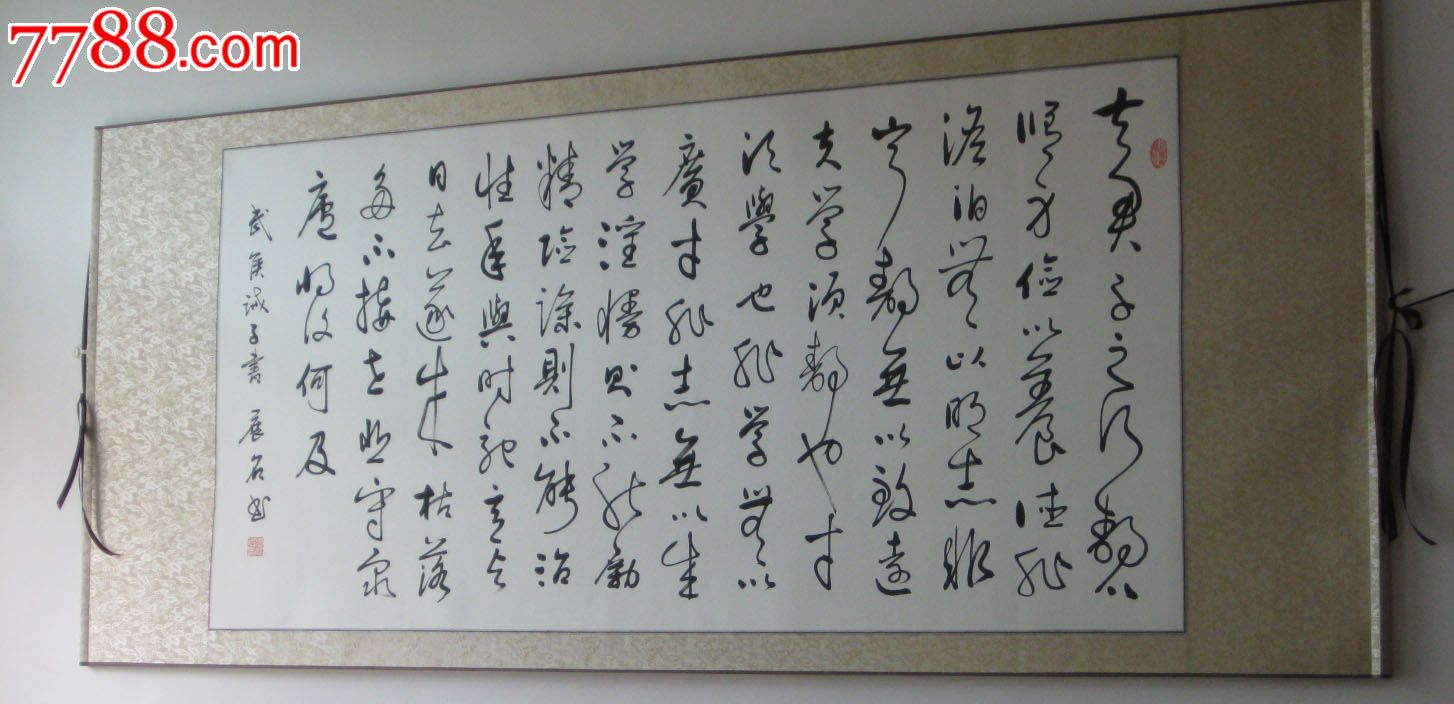 7788.com
夫君子之行静以
修身俭以養德非
澹泊無以明志非
宁静無以致远
夫学须静也才
须學也非学無以
廣才非志無以成
学淫慢则不能励
精险躁則不能治
性年與时驰意与
日去遂成枯落
多不接世悲守穷
廬将復何及
武侯诫子書 展名书